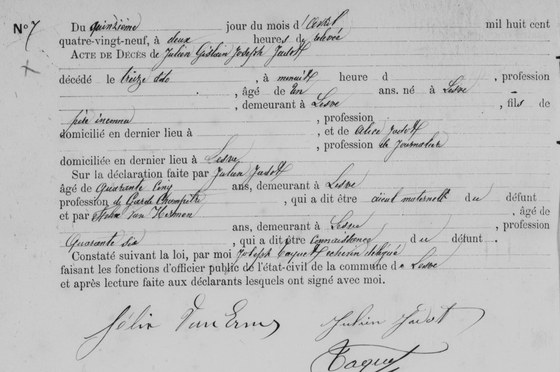 No 7
Du quinzième jour du mois d'Avril mil huit cent
quatre-vingt-neuf, à deux heures de relevée
ACTE DE DÉCÈS de Julien Ghislain Joseph Jadot
décédé le treize dito, à minuit heure d, profession
, âgé de Un ans. né à Lesve
, demeurant à Lesve, fils de
père inconnu, profession
domicilié en dernier lieu à et de Alice Jadot
, profession de Journalière
domiciliée en dernier lieu à Lesve
Sur la déclaration faite par Julien Jadot
âgé de Quarante Cinq ans, demeurant à Lesve
profession de Garde Champêtre, qui a dit être aïeul maternel du défunt
et par Félix Van, âgé de
Quarante six ans, demeurant à Lesve, profession
, qui a dit être Connaissance du défunt.
Constaté suivant la loi, par moi Joseph Taquet échevin délégué
faisant les fonctions d'officier public de l'état-civil de la commune de Lesve
et après lecture faite aux déclarants lesquels ont signé avec moi.
Félix Van Julien Jadot
Taquet